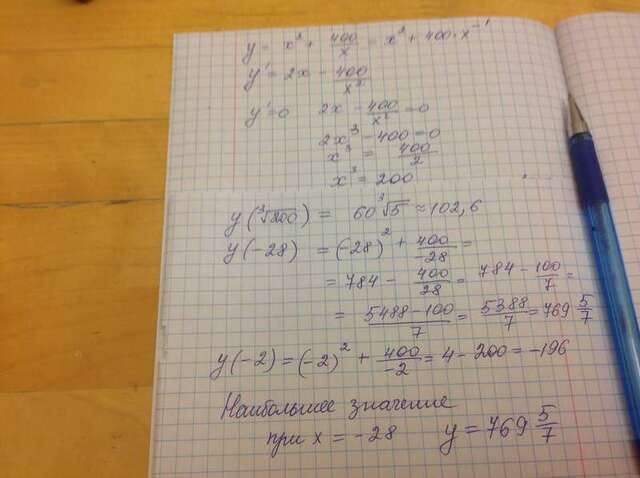 y = x² + 400/x = x² + 400·x⁻¹
y' = 2x - 400/x²
y'=0 2x - 400/x² = 0
2x³ - 400 = 0
x³ = 400/2
x³ = 200
y(∛200) = 60∛5 ≈ 102,6
y(-28) = (-28)² + 400/-28 =
= 784 - 400/28 = 784 - 100/7 =
= 5488-100/7 = 5388/7 = 769 5/7
y(-2) = (-2)² + 400/-2 = 4 - 200 = -196
Наибольшее значение
при x = -28 y = 769 5/7